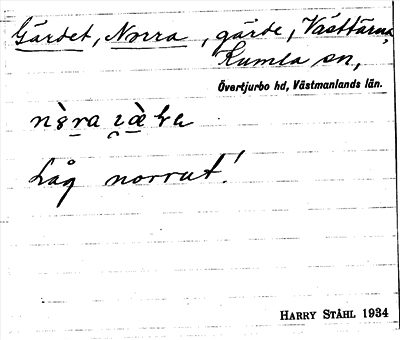 Gärdet, Norra, gärde, Västtärna,
Kumla sn,
Övertjurbo hd, Västmanlands län.
Låg norrut!
HARRY STÅHL 1934